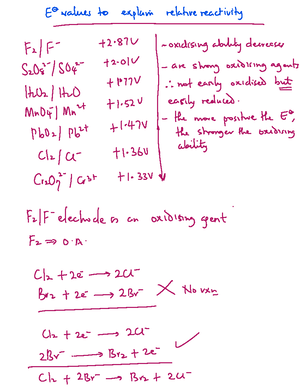 E° values to explain relative reactivity
F₂/F⁻ +2.87V
S₂O₈²⁻/SO₄²⁻ +2.01V
H₂O₂/H₂O +1.77V
MnO₄⁻/Mn²⁺ +1.52V
PbO₂/Pb²⁺ +1.47V
Cl₂/Cl⁻ +1.36V
Cr₂O₇²⁻/Cr³⁺ +1.33V
- oxidising ability decreases
- are strong oxidising agents
∴ not easily oxidised but
easily reduced.
- the more positive the E°,
the stronger the oxidising
ability
F₂/F⁻ electrode is an oxidising agent
F₂ ⇒ O.A.
Cl₂ + 2e⁻ → 2Cl⁻
Br₂ + 2e⁻ → 2Br⁻ ✗ No rxn
Cl₂ + 2e⁻ → 2Cl⁻
2Br⁻ → Br₂ + 2e⁻ ✓
Cl₂ + 2Br⁻ → Br₂ + 2Cl⁻